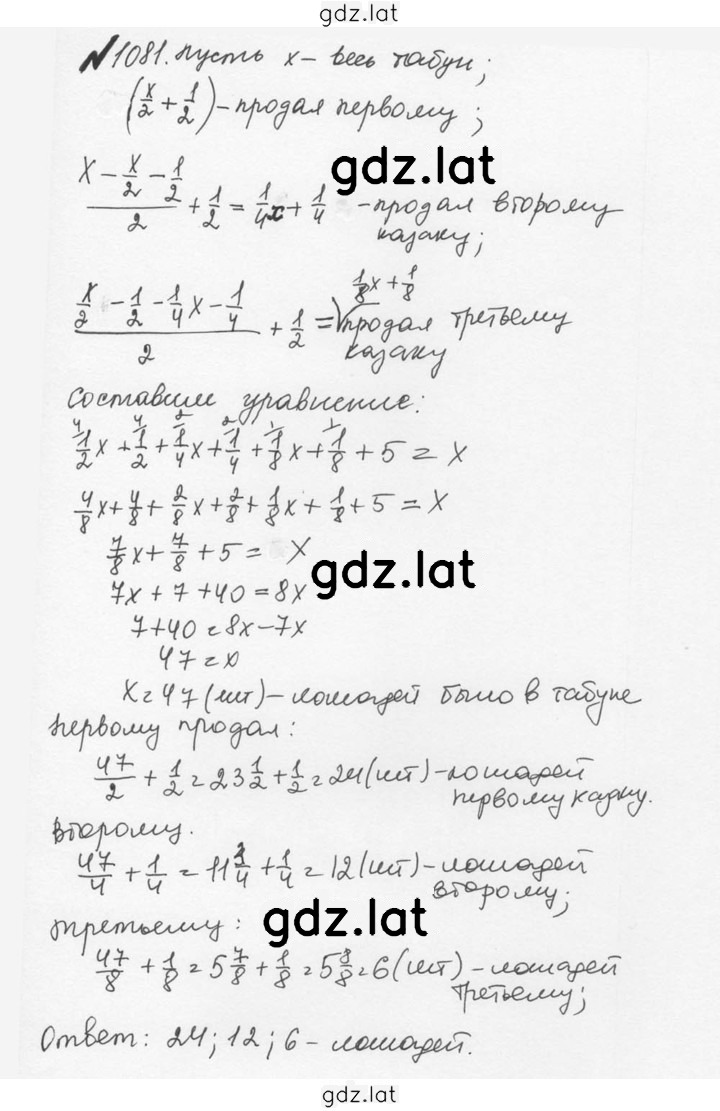 gdz.lat
№1081. пусть x – весь табун;
(x/2 + 1/2) – продал первому;
gdz.lat
(x – x/2 – 1/2)/2 + 1/2 = 1/4x + 1/4 – продал второму
казаку;
(x/2 – 1/2 – 1/4x – 1/4)/2 + 1/2 = 1/8x + 1/8 продал третьему
казаку
составим уравнение:
1/2x + 1/2 + 1/4x + 1/4 + 1/8x + 1/8 + 5 = x
4/8x + 4/8 + 2/8x + 2/8 + 1/8x + 1/8 + 5 = x
7/8x + 7/8 + 5 = x
gdz.lat
7x + 7 + 40 = 8x
7+40 = 8x – 7x
47 = x
x = 47 (шт) – лошадей было в табуне
первому продал:
47/2 + 1/2 = 23 1/2 + 1/2 = 24 (шт) – лошадей
первому казаку.
второму.
47/4 + 1/4 = 11 3/4 + 1/4 = 12 (шт) – лошадей
второму;
gdz.lat
третьему:
47/8 + 1/8 = 5 7/8 + 1/8 = 5 8/8 = 6 (шт) – лошадей
третьему;
Ответ: 24; 12; 6 – лошадей.
gdz.lat